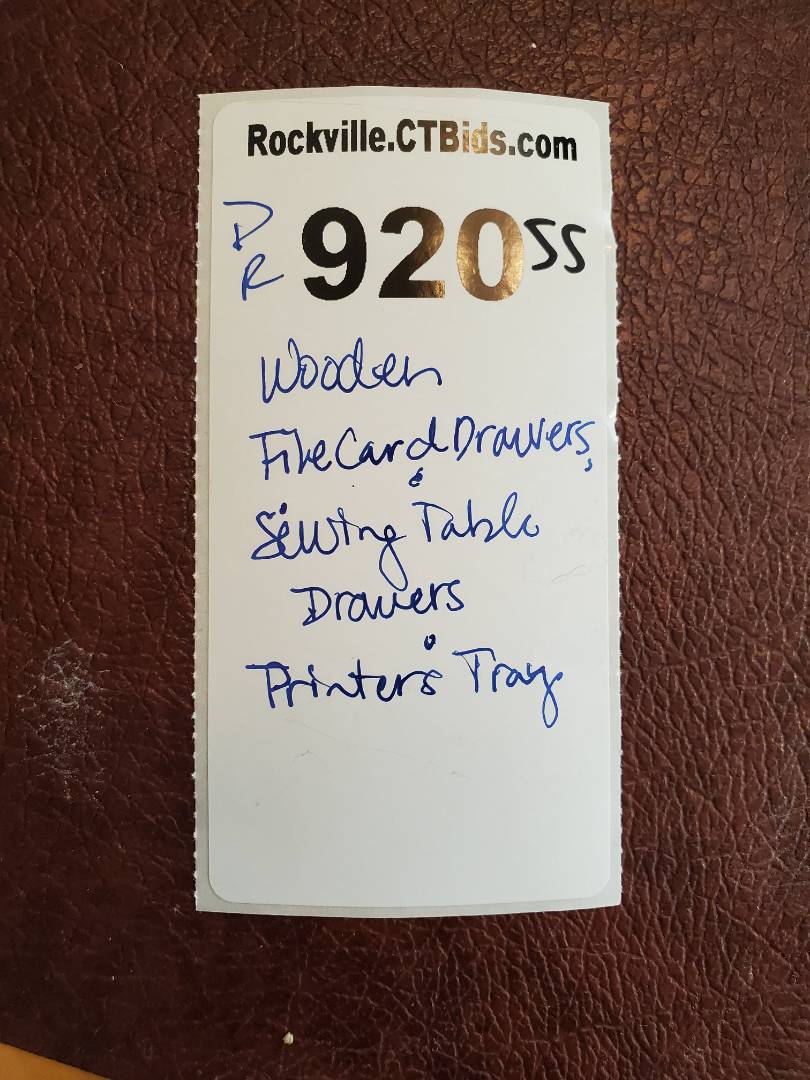 Rockville.CTBids.com
DR 920 SS
Wooden
File Card Drawers,
& Sewing Table
Drawers
Printers Tray